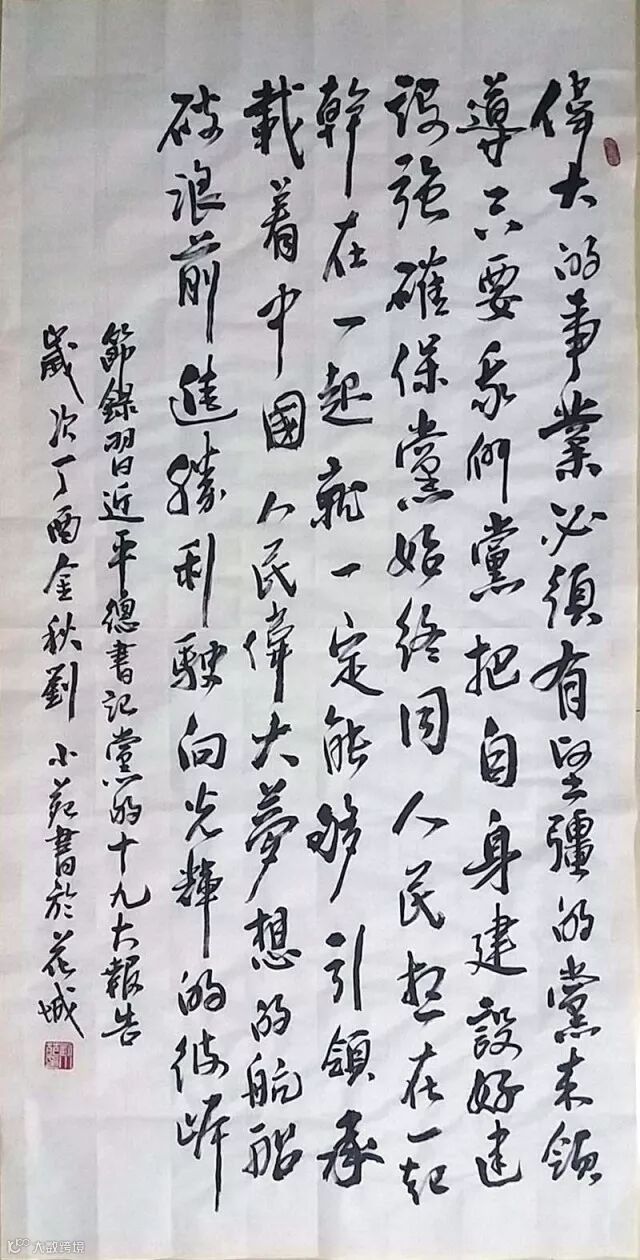 偉大的事業必須有堅彊的黨來領
導只要我們黨把自身建設好建
設強確保黨始終同人民想在一起
幹在一起就一定能夠引領承
載着中國人民偉大夢想的航船
破浪前進勝利駛向光輝的彼岸
節錄習近平總書記黨的十九大報告
歲次丁酉金秋劉小苑書於花城
大数跨境